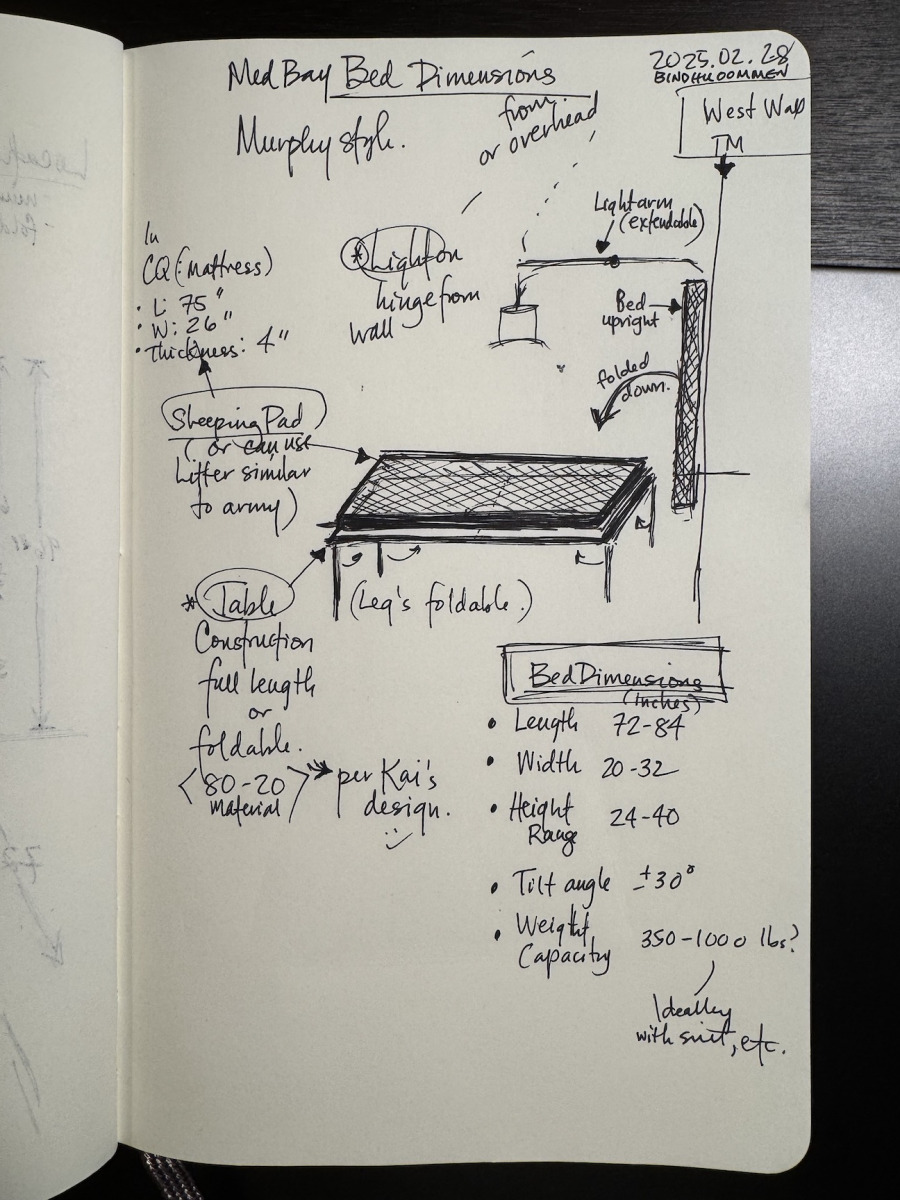 MedBay Bed Dimensions
2025.02.28
BINDHU OOMMEN
Murphy style.
from
or overhead
West Wall
TM
Light arm
(extendable)
In
CQ (: mattress)
• L: 75"
• W: 26"
• Thickness: 4"
* Light on
hinge from
wall
Bed
upright
folded
down.
Sleeping Pad
(or can use
Litter similar
to army)
* Table
Construction
full length
or
foldable.
<80-20>
material
per Kai's
design.
(Leg's foldable.)
Bed Dimensions
(inches)
• Length 72-84
• Width 20-32
• Height 24-40
Range
• Tilt angle ±30°
• Weight
Capacity 350-1000 lbs?
Ideally
with suit, etc.